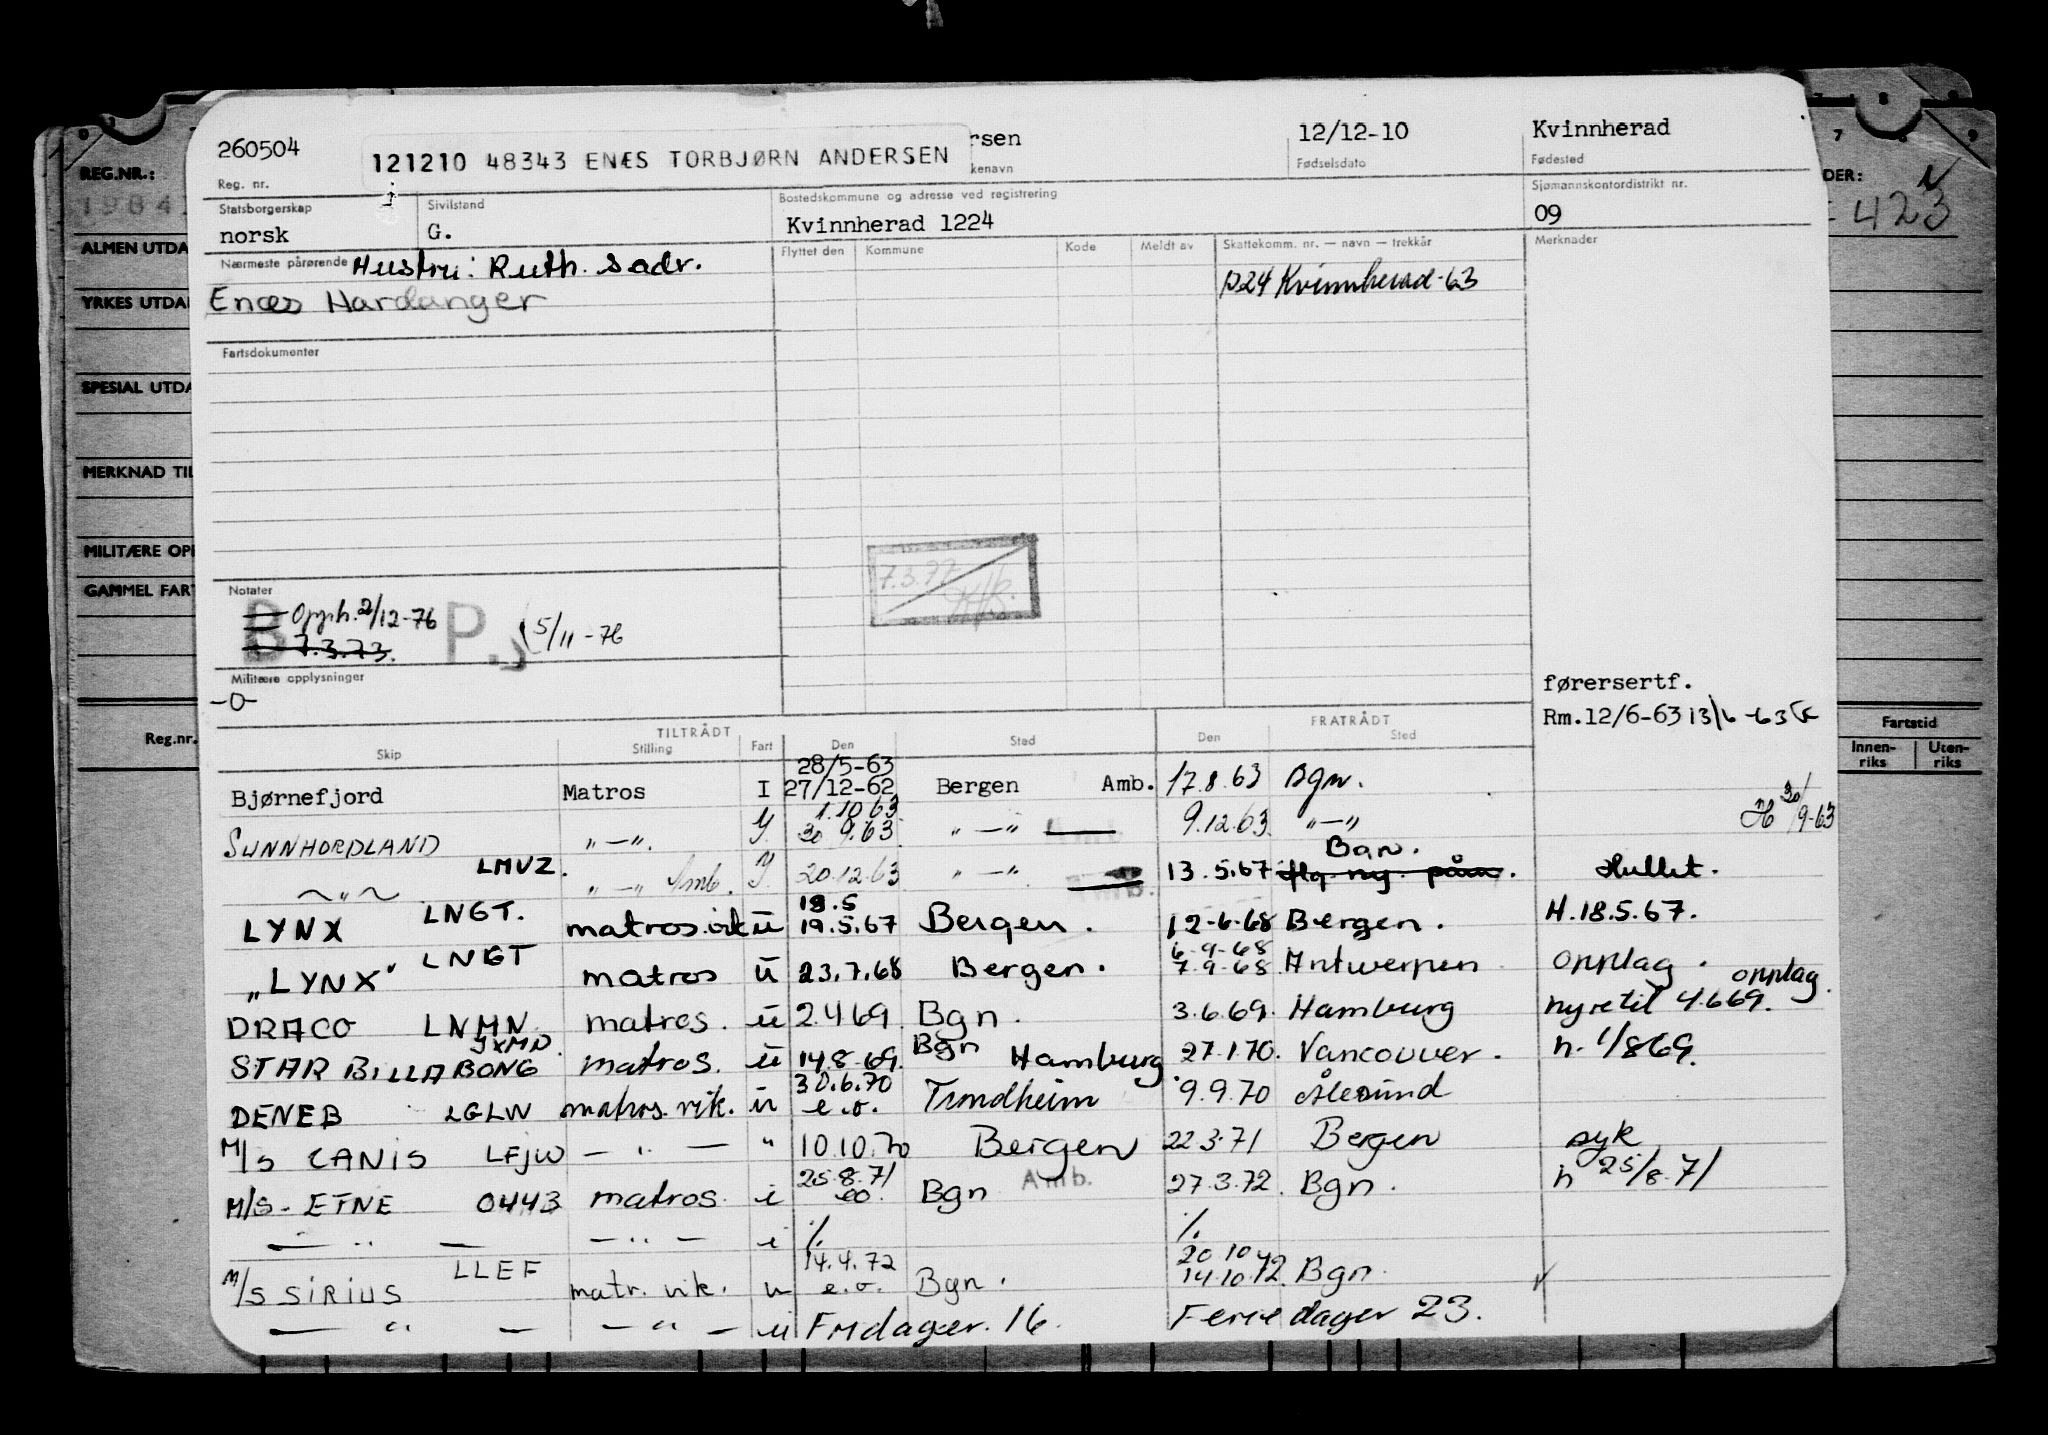 260504
121210 48343 ENÆS TORBJØRN ANDERSEN
rsen
12/12-10
Kvinnherad
Reg. nr.
kenavn
Fødselsdato
Fødested
Statsborgerskap
norsk
Sivilstand
G.
Bostedskommune og adresse ved registrering
Kvinnherad 1224
Sjømannskontordistrikt nr.
09
Nærmeste pårørende Hustru: Ruth. s adr.
Enæs Hardanger
Flyttet den
Kommune
Kode
Meldt av
Skattekomm. nr. — navn — trekkår
Merknader
1224 Kvinnherad-63
Fartsdokumenter
7.3.77
Notater
B Opph. 2/12-76 P. 5/11-76
7.3.73.
Militære opplysninger
-0-
førersertf.
Rm.12/6-63 13/6-63
TILTRÅDT
FRATRÅDT
Skip
Stilling
Fart
Den
Sted
Den
Sted
28/5-63
Bjørnefjord Matros I 27/12-62 Bergen Amb. 17.8.63 Bgn.
1.10 63
SUNNHORDLAND " — ". 30 9.63 " — " 9.12.63 " — " 30/9-63
Bgn.
" LMVZ. " — " Amb. 20.12.63 " — " 13.5.67 Hullet.
18.5
LYNX LNGT. matros.vik ü 19.5.67 Bergen. 12-6-68 Bergen. H.18.5.67.
6-9-68
"LYNX" LNGT matros ü 23.7.68 Bergen. 7.9-68 Antwerpen opplag. opplag.
DRACO LNMN matros. ü 2.4 69. Bgn. 3.6.69. Hamburg hyretil 4.6 69.
JXMD.
STAR BILLABONG matros. ü 14.8.69. Bgn Hamburg 27.1.70. Vancouver. h. 1/8 69.
30.6.70
DENEB LGLW matros. vik. ü e.o. Trondheim 9.9.70 Ålesund
M/S CANIS LFJW — " — " 10.10.70 Bergen 22.3.71 Bergen syk
25.8.71
M/S- ETNE 0443 matros. i eo. Bgn Amb. 27.3.72. Bgn. h 25/8.71
— " — — " — i %. %.
14.4.72 20 10
M/S SIRIUS LLEF matr. vik. u e.o. Bgn. 14.10.72. Bgn.
— " — — " — ü Fridager. 16. Feriedager 23.
REG.NR.:
1984
ALMEN UTDA
YRKES UTDA
SPESIAL UTDA
MERKNAD TIL
MILITÆRE OPP
GAMMEL FART
Reg.nr.
7
8
9
DER:
423
Fartstid
Innen-
riks
Uten-
riks